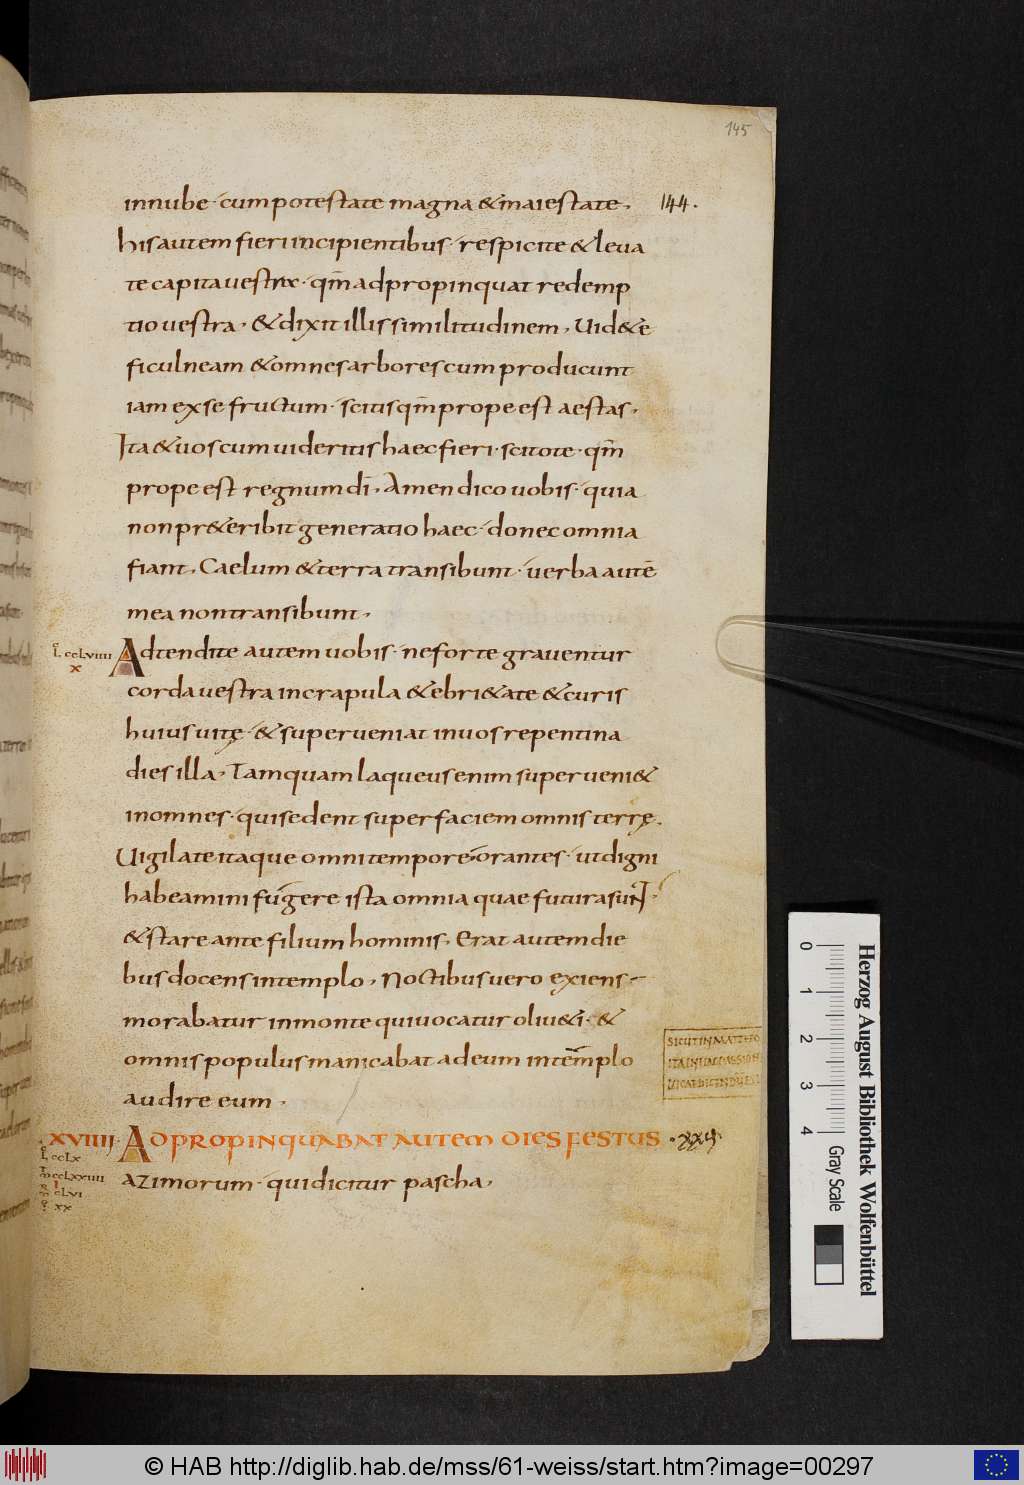 145
innube · cum potestate magna & maiestate. 144.
his autem fieri incipientibus · respicite & leua
te capita uestra · qm̄ adpropinquat redemp
tio uestra. & dixit illis similitudinem. Uid&e
ficulneam & omnes arbores cum producunt
iam ex se fructum · scitis qm̄ prope est aestas.
Ita & uos cum uideritis haec fieri · scitote · qm̄
prope est regnum dī. Amen dico uobis · quia
non pr&eribit generatio haec · donec omnia
fiant. Caelum & terra transibunt · uerba autē
mea non transibunt.
L̄ ccLviiii Adtendite autem uobis · ne forte grauentur
x
corda uestra in crapula & ebri&ate & curis
huius uitę · & superueniat in uos repentina
dies illa. Tamquam laqueus enim superueni&
in omnes · qui sedent super faciem omnis terrę.
Uigilate itaque omni tempore orantes · ut digni
habeamini fugere ista omnia quae futura sunt
& stare ante filium hominis. Erat autem die
bus docens in templo. Noctibus uero exiens
morabatur in monte qui uocatur oliu&i · &
omnis populus manicabat ad eum in templo
SICUT IN MATTHEO
ITA IN HAC PASSION
audire eum.
xviiii · ADPROPINQUABAT AUTEM DIES FESTUS · xxii
L̄ ccLx
azimorum · qui dicitur pascha.
ccLxxiiii
cLvi
xx
Herzog August Bibliothek Wolfenbüttel
0 1 2 3 4
Gray Scale
© HAB http://diglib.hab.de/mss/61-weiss/start.htm?image=00297